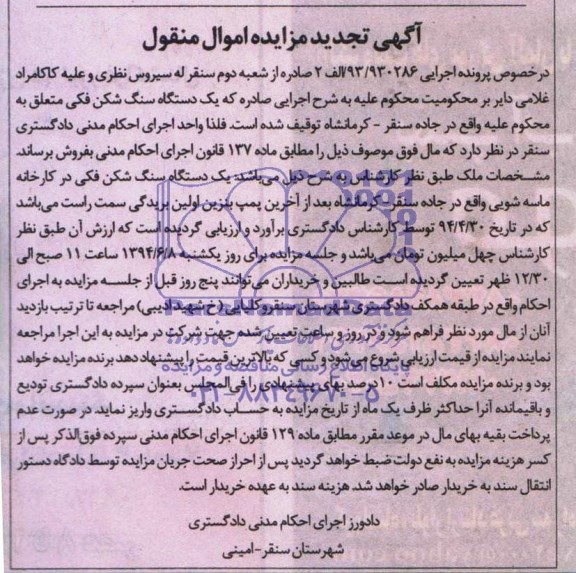 آگهی تجدید مزایده اموال منقول
در خصوص پرونده اجرایی ۹۳/۹۳۰۲۸۶/الف ۲ صادره از شعبه دوم سنقر له سیروس نظری و علیه کاکامراد
غلامی دایر بر محکومیت محکوم علیه به شرح اجرایی صادره که یک دستگاه سنگ شکن فکی متعلق به
محکوم علیه واقع در جاده سنقر - کرمانشاه توقیف شده است. فلذا واحد اجرای احکام مدنی دادگستری
سنقر در نظر دارد که مال فوق موصوف ذیل را مطابق ماده ۱۳۷ قانون اجرای احکام مدنی بفروش برساند.
مشخصات ملک طبق نظر کارشناس به شرح ذیل می‌باشد: یک دستگاه سنگ شکن فکی در کارخانه
ماسه شویی واقع در جاده سنقر - کرمانشاه بعد از آخرین پمپ بنزین اولین بریدگی سمت راست می‌باشد
که در تاریخ ۹۴/۴/۳۰ توسط کارشناس دادگستری برآورد و ارزیابی گردیده است که ارزش آن طبق نظر
کارشناس چهل میلیون تومان می‌باشد و جلسه مزایده برای روز یکشنبه ۱۳۹۴/۶/۸ ساعت ۱۱ صبح الی
۱۲/۳۰ ظهر تعیین گردیده است طالبین و خریداران می‌توانند پنج روز قبل از جلسه مزایده به اجرای
احکام واقع در طبقه همکف دادگستری شهرستان سنقر و کلیایی (خ شهید ادیبی) مراجعه تا ترتیب بازدید
آنان از مال مورد نظر فراهم شود و در روز و ساعت تعیین شده جهت شرکت در مزایده به این اجرا مراجعه
نمایند مزایده از قیمت ارزیابی شروع می‌شود و کسی که بالاترین قیمت را پیشنهاد دهد برنده مزایده خواهد
بود و برنده مزایده مکلف است ۱۰ درصد بهای پیشنهادی را فی‌المجلس بعنوان سپرده دادگستری تودیع
و باقیمانده آنرا حداکثر ظرف یک ماه از تاریخ مزایده به حساب دادگستری واریز نماید. در صورت عدم
پرداخت بقیه بهای مال در موعد مقرر مطابق ماده ۱۲۹ قانون اجرای احکام مدنی سپرده فوق‌الذکر پس از
کسر هزینه مزایده به نفع دولت ضبط خواهد گردید پس از احراز صحت جریان مزایده توسط دادگاه دستور
انتقال سند به خریدار صادر خواهد شد. هزینه سند به عهده خریدار است.
دادورز اجرای احکام مدنی دادگستری
شهرستان سنقر-امینی
ParsNamadData
پایگاه اطلاع رسانی مناقصه و مزایده
۰۲۱-۸۸۳۴۹۶۷۰-۵